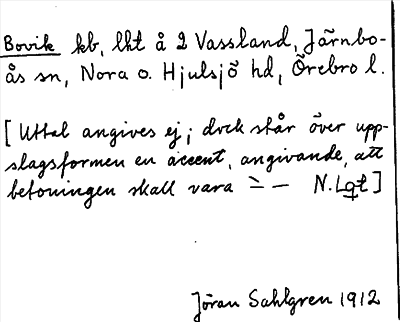 Bovik kb, lht å 2 Vassland, Järnbo-
ås sn, Nora o. Hjulsjö hd, Örebro l.
[Uttal angives ej; dock står över upp-
slagsformen en accent, angivande, att
betoningen skall vara ⏤̀ – N.Lqt]
Jöran Sahlgren 1912